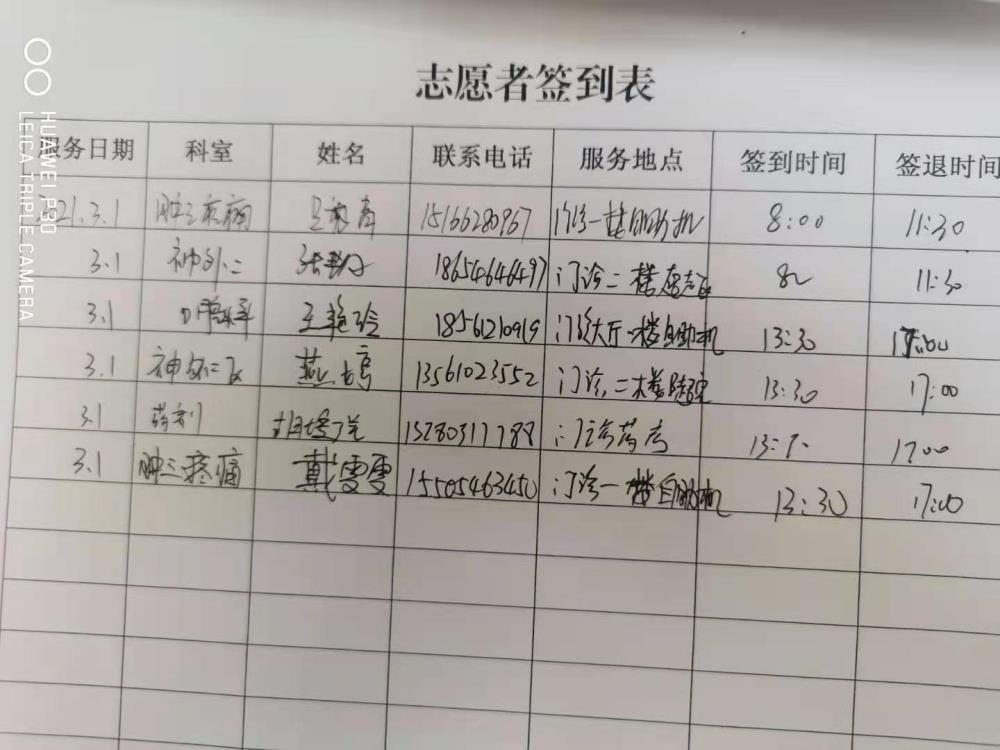 志愿者签到表
服务日期 科室 姓名 联系电话 服务地点 签到时间 签退时间
2021.3.1 肿三疼痛 15166280967 门诊一楼自助机 8:00 11:30
3.1 神外二 18654646497 门诊二楼 11:30
3.1 王艳玲 18561210919 门诊大厅一楼自助机 13:30 17:00
3.1 神外二 燕 13561023552 门诊二楼 13:30 17:00
3.1 药剂 15280317788 门诊药房 17:00
3.1 肿三疼痛 戴雯雯 15505463450 门诊一楼自助机 13:30 17:00
HUAWEI P30
LEICA TRIPLE CAMERA